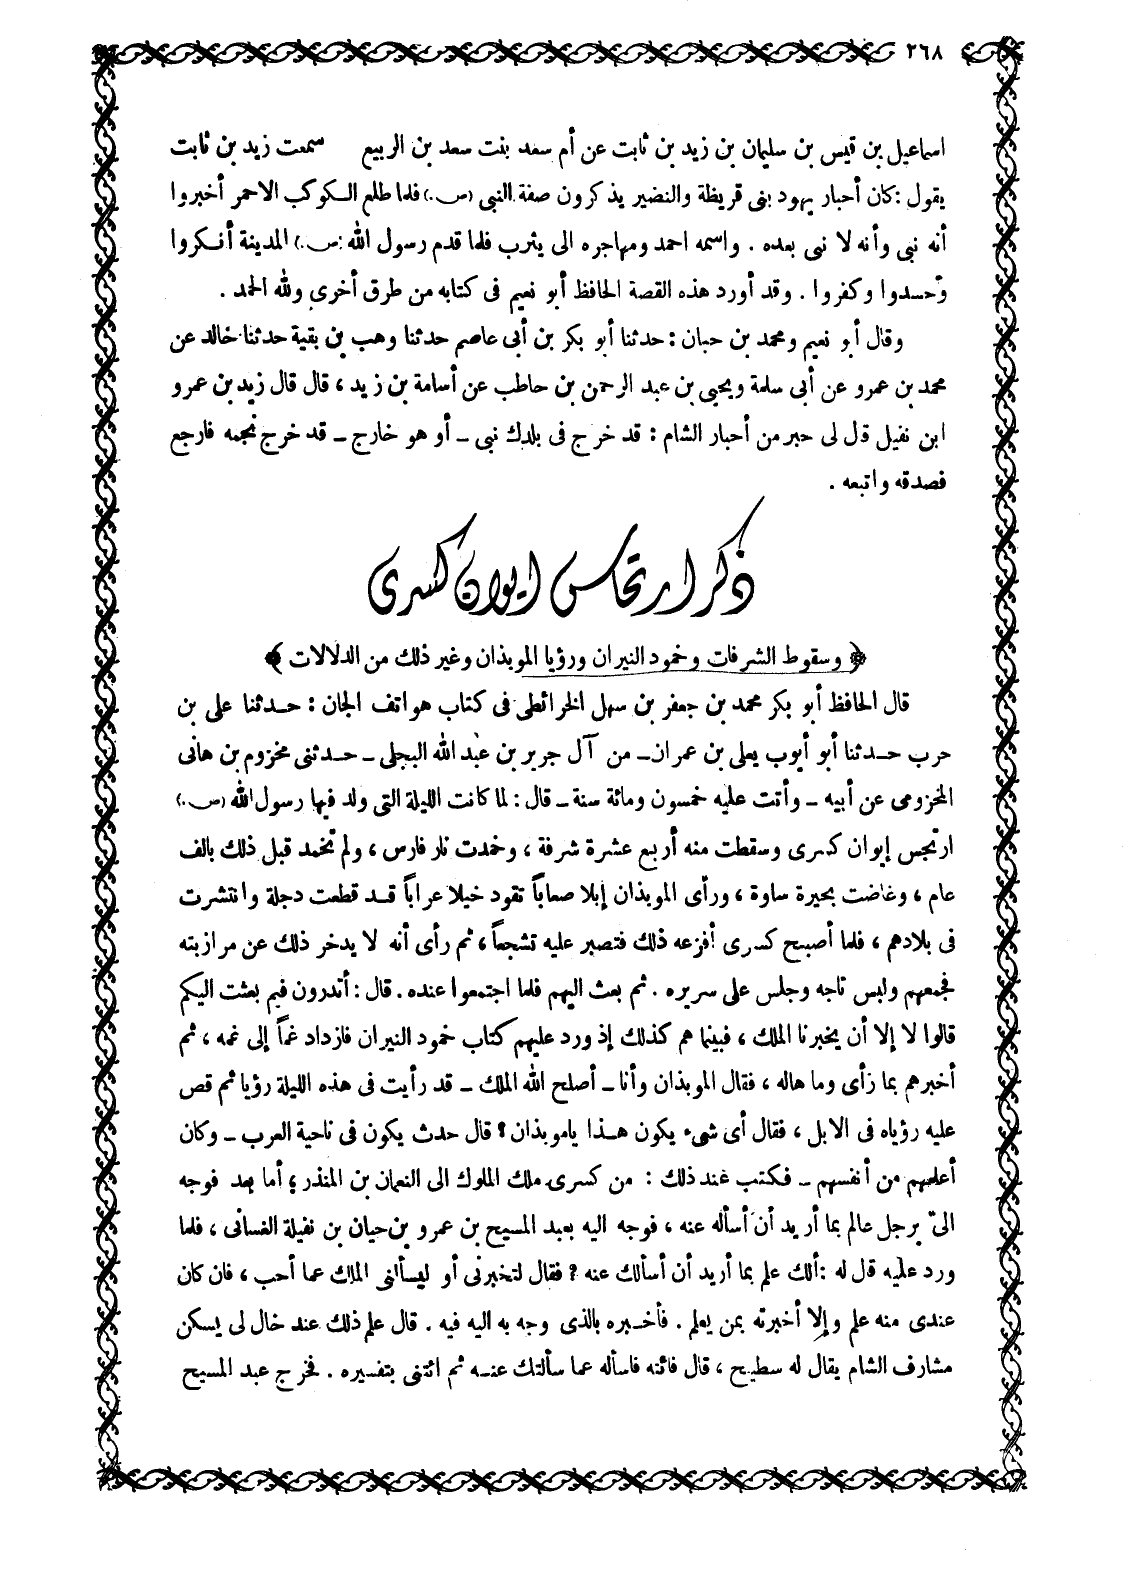 ٢٦٨
اسماعيل بن قيس بن سليمان بن زيد بن ثابت عن أم سعد بنت سعد بن الربيع سمعت زيد بن ثابت
يقول : كان أحبار يهود بنى قريظة والنضير يذكرون صفة النبى (ص.) فلما طلع الكوكب الاحمر أخبروا
أنه نبى وأنه لا نبى بعده . واسمه احمد ومهاجره الى يثرب فلما قدم رسول الله (ص.) المدينة أنكروا
وحسدوا وكفروا . وقد أورد هذه القصة الحافظ أبو نعيم فى كتابه من طرق أخرى ولله الحمد .
وقال أبو نعيم ومحمد بن حبان : حدثنا أبو بكر بن أبى عاصم حدثنا وهب بن بقية حدثنا خالد عن
محمد بن عمرو عن أبى سلمة ويحيى بن عبد الرحمن بن حاطب عن أسامة بن زيد ، قال قال زيد بن عمرو
ابن نفيل قال لى حبر من أحبار الشام : قد خرج فى بلدك نبى ـ أو هو خارج ـ قد خرج نجمه فارجع
فصدقه واتبعه .
ذكر ارتجاس ايوان كسرى
﴿ وسقوط الشرفات وخمود النيران ورؤيا الموبذان وغير ذلك من الدلالات ﴾
قال الحافظ أبو بكر محمد بن جعفر بن سهل الخرائطى فى كتاب هواتف الجان : حدثنا على بن
حرب حدثنا أبو أيوب يعلى بن عمران ـ من آل جرير بن عبد الله البجلى ـ حدثنى مخزوم بن هانى
المخزومى عن أبيه ـ وأتت عليه خمسون ومائة سنة ـ قال : لما كانت الليلة التى ولد فيها رسول الله (ص.)
ارتجس إيوان كسرى وسقطت منه أربع عشرة شرفة ، وخمدت نار فارس ، ولم تخمد قبل ذلك بالف
عام ، وغاضت بحيرة ساوة ، ورأى الموبذان إبلا صعاباً تقود خيلا عراباً قد قطعت دجلة وانتشرت
فى بلادهم ، فلما أصبح كسرى أفزعه ذلك فتصبر عليه تشجعاً ، ثم رأى أنه لا يدخر ذلك عن مرازبته
فجمعهم ولبس تاجه وجلس على سريره . ثم بعث اليهم فلما اجتمعوا عنده . قال : أتدرون فيم بعثت اليكم
قالوا لا إلا أن يخبرنا الملك ، فبينما هم كذلك إذ ورد عليهم كتاب خمود النيران فازداد غماً إلى غمه ، ثم
أخبرهم بما رأى وما هاله ، فقال الموبذان وأنا ـ أصلح الله الملك ـ قد رأيت فى هذه الليلة رؤيا ثم قص
عليه رؤياه فى الابل ، فقال أى شىء يكون هذا ياموبذان ؟ قال حدث يكون فى ناحية العرب ـ وكان
أعلمهم من أنفسهم ـ فكتب عند ذلك : من كسرى ملك الملوك الى النعمان بن المنذر ؛ أما بعد فوجه
الىّ برجل عالم بما أريد أن أسأله عنه ، فوجه اليه بعبد المسيح بن عمرو بن حيان بن نفيلة الغسانى ، فلما
ورد عليه قال له : ألك علم بما أريد أن أسألك عنه ؟ فقال لتخبرنى أو ليسألنى الملك عما أحب ، فان كان
عندى منه علم وإلا أخبرته بمن يعلم . فأخبره بالذى وجه به اليه فيه . قال علم ذلك عند خال لى يسكن
مشارف الشام يقال له سطيح ، قال فائته فاسأله عما سألتك عنه ثم ائتنى بتفسيره . فخرج عبد المسيح